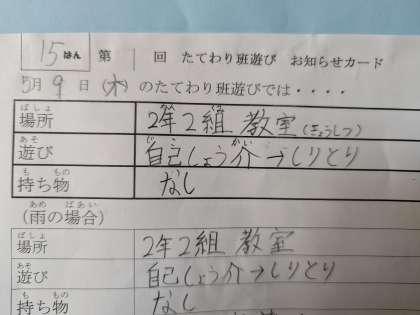 15はん 第1回 たてわり班遊び お知らせカード
5月9日(木)のたてわり班遊びでは・・・・
ばしょ ねん くみ
場所 2年2組 教室(きょうしつ)
あそ じこ かい
遊び 自己しょう介→しりとり
も もの
持ち物 なし
あめ ばあい
(雨の場合)
ばしょ
場所 2年2組 教室
あそ
遊び 自己しょう介→しりとり
も もの
持ち物 なし